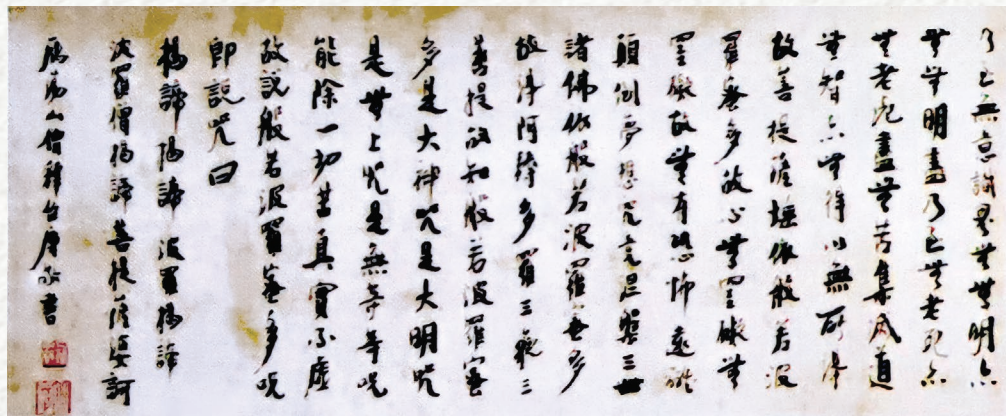 乃至無意識界無無明亦
無無明盡乃至無老死亦
無老死盡無苦集滅道
無智亦無得以無所得
故菩提薩埵依般若波
羅蜜多故心無罣礙無
罣礙故無有恐怖遠離
顛倒夢想究竟涅槃三世
諸佛依般若波羅蜜多
故得阿耨多羅三藐三
菩提故知般若波羅蜜
多是大神咒是大明咒
是無上咒是無等等咒
能除一切苦真實不虛
故說般若波羅蜜多咒
即說咒曰
揭諦揭諦 波羅揭諦
波羅僧揭諦菩提薩婆訶
山僧釋 書